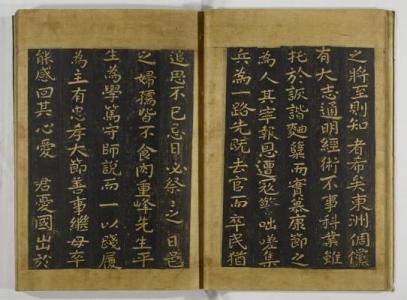 之將至則知 者希矣東洲倜儻
有大志通明經術不事科業雖
托於詼諧麯糵而實慕康節之
為人其寧報恩遭惡聲咄嗟集
兵為一路先旣去官而卒民猶
追思不已忌日必祭之之日邑
之婦孺皆不食肉重峰先生平
生為學篤守師說而一以踐履
為主有忠孝大節善事繼母卒
能感回其心愛 君愛國出於